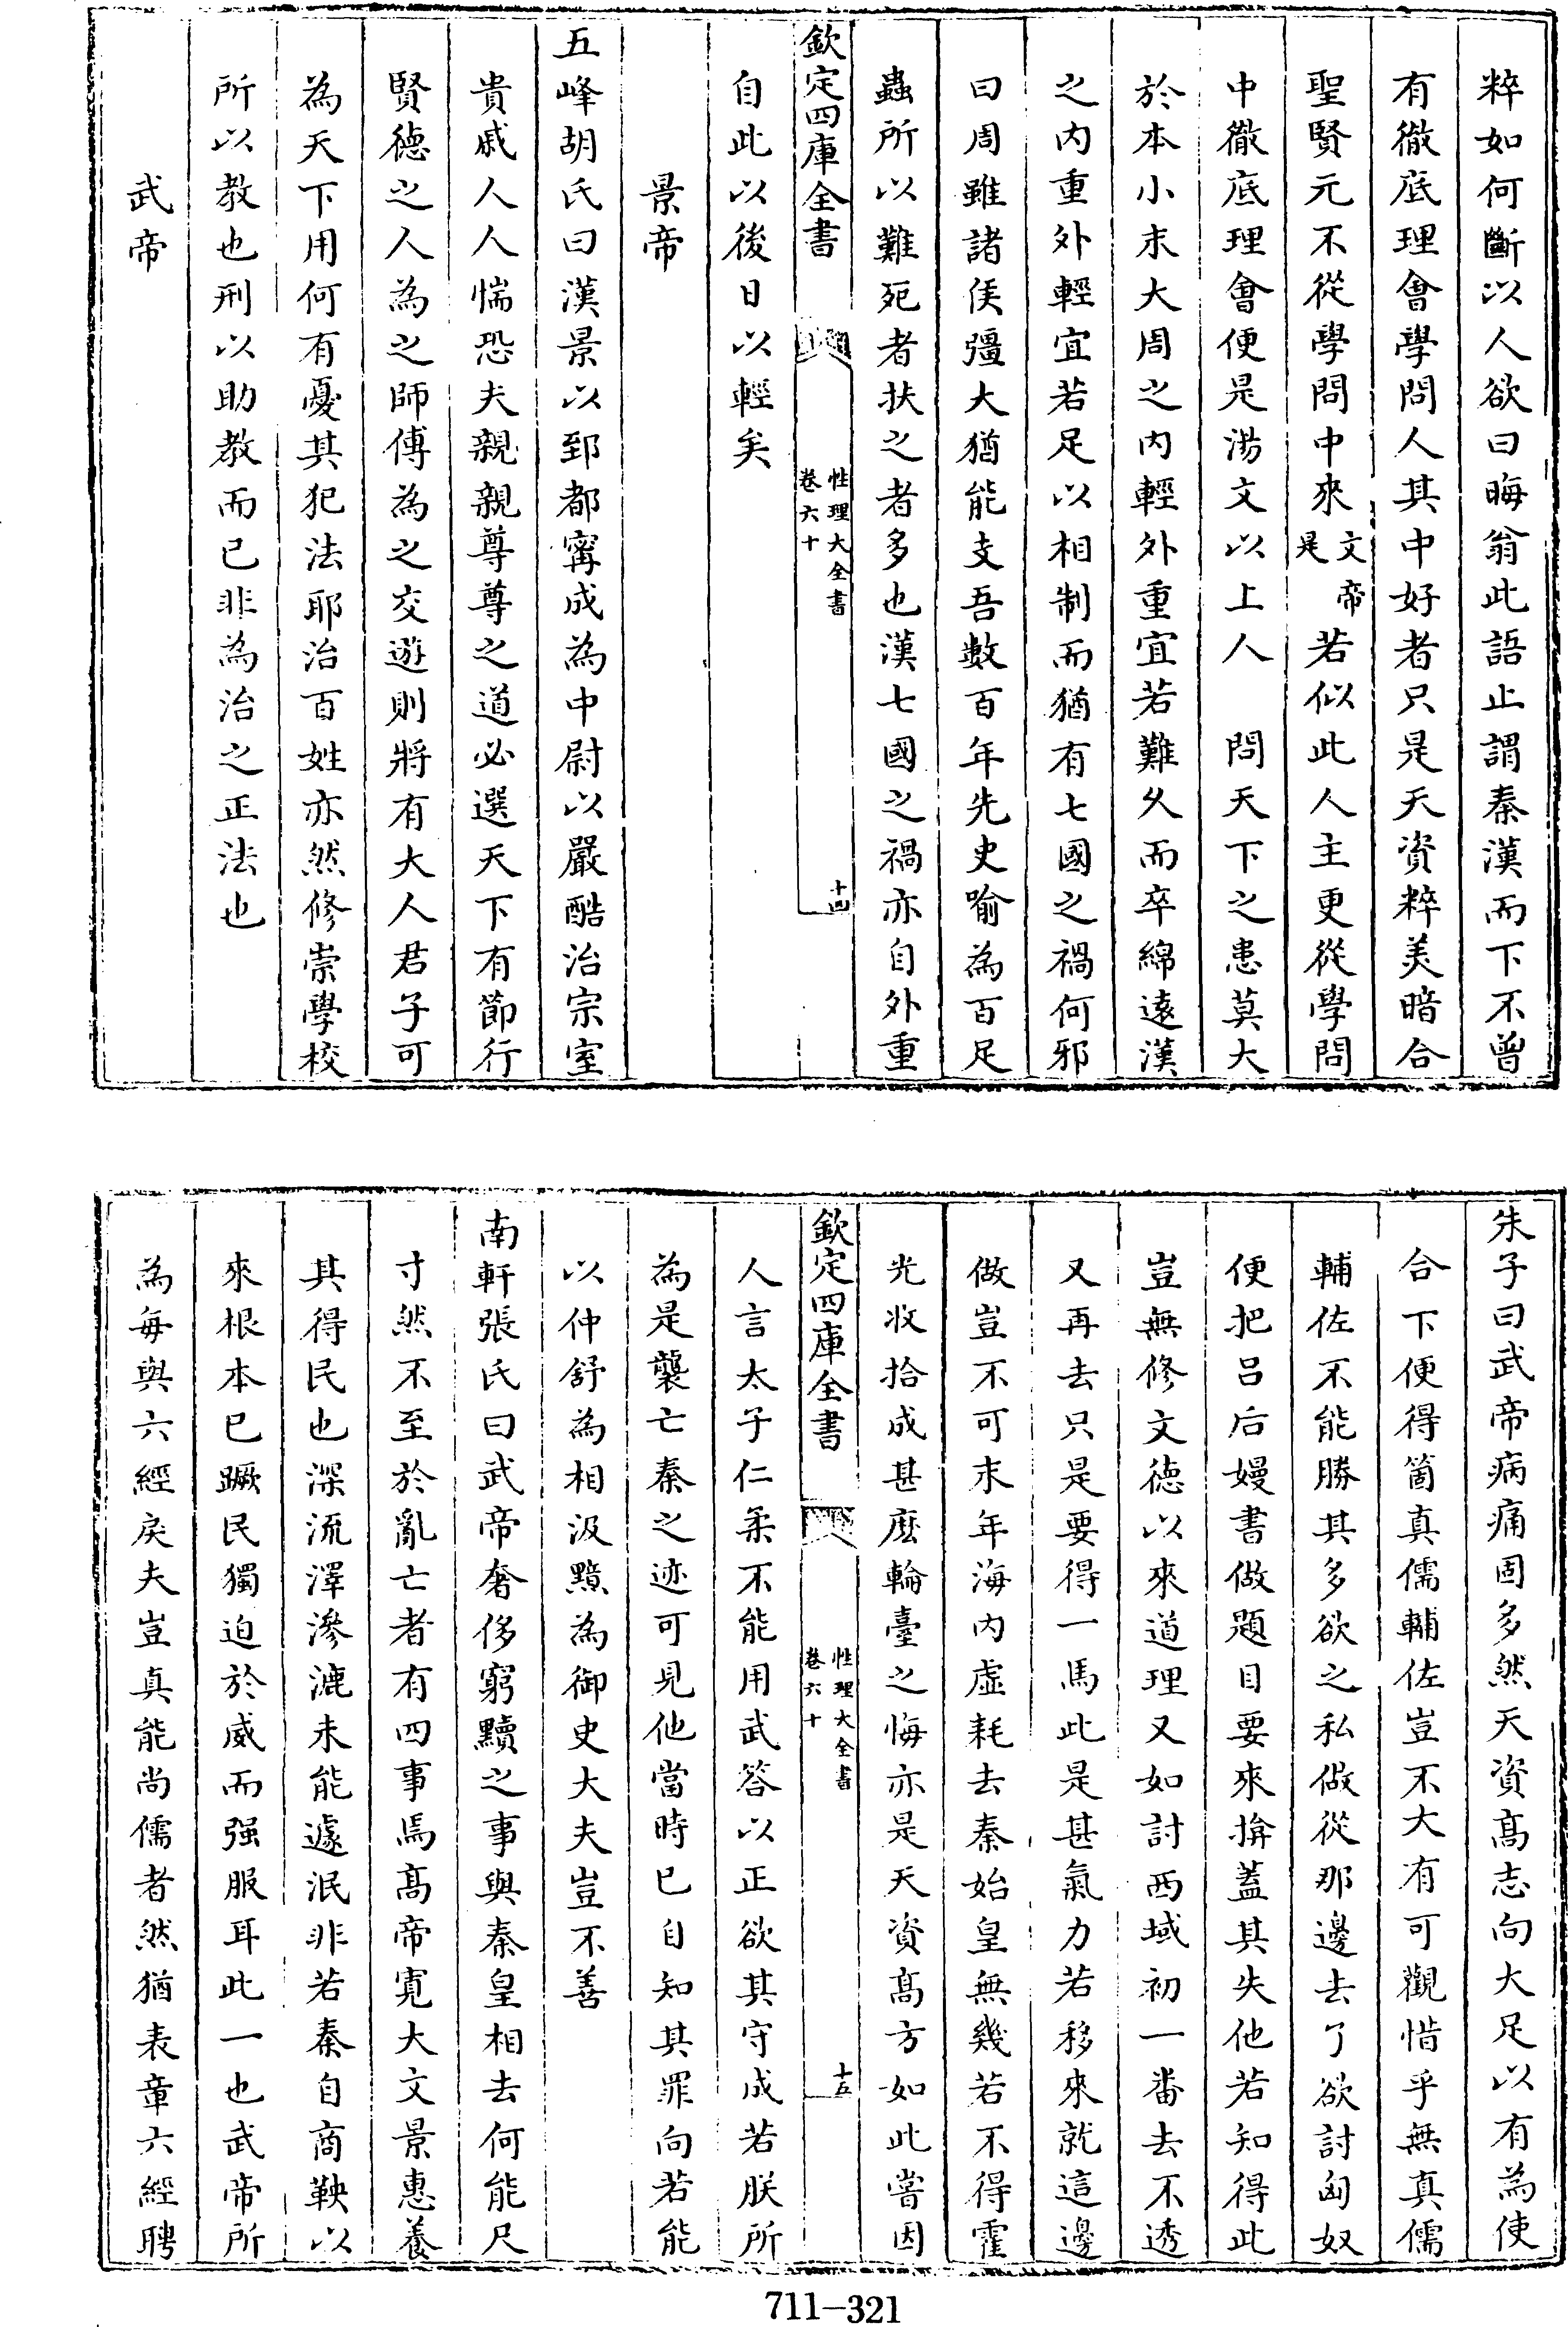 粹如何斷以人欲曰晦翁此語止謂秦漢而下不曾
有徹底理會學問人其中好者只是天資粹美暗合
聖賢元不從學問中來文帝是若似此人主更從學問
中徹底理會便是湯文以上人　問天下之患莫大
於本小末大周之內輕外重宜若難久而卒綿遠漢
之內重外輕宜若足以相制而猶有七國之禍何邪
曰周雖諸侯彊大猶能支吾數百年先史喻為百足
蟲所以難死者扶之者多也漢七國之禍亦自外重
欽定四庫全書　性理大全書卷六十　十四
自此以後日以輕矣
景帝
五峰胡氏曰漢景以郅都甯成為中尉以嚴酷治宗室
貴戚人人惴恐夫親親尊尊之道必選天下有節行
賢德之人為之師傅為之交遊則將有大人君子可
為天下用何有憂其犯法耶治百姓亦然修崇學校
所以教也刑以助教而已非為治之正法也
武帝
朱子曰武帝病痛固多然天資髙志向大足以有為使
合下便得箇真儒輔佐豈不大有可觀惜乎無真儒
輔佐不能勝其多欲之私做從那邊去了欲討匈奴
便把吕后嫚書做題目要來揜蓋其失他若知得此
豈無修文徳以來道理又如討西域初一番去不透
又再去只是要得一馬此是甚氣力若移來就這邊
做豈不可末年海内虚耗去秦始皇無幾若不得霍
光收拾成甚麽輪臺之悔亦是天資髙方如此嘗因
欽定四庫全書　性理大全書卷六十　十五
人言太子仁柔不能用武答以正欲其守成若朕所
為是襲亡秦之迹可見他當時已自知其罪向若能
以仲舒為相汲黯為御史大夫豈不善
南軒張氏曰武帝奢侈窮黷之事與秦皇相去何能尺
寸然不至於亂亡者有四事焉髙帝寛大文景惠養
其得民也深流澤滲漉未能遽泯非若秦自商鞅以
來根本已蹶民獨迫於威而强服耳此一也武帝所
為每與六經戾夫豈真能尚儒者然猶表章六經聘
711-321